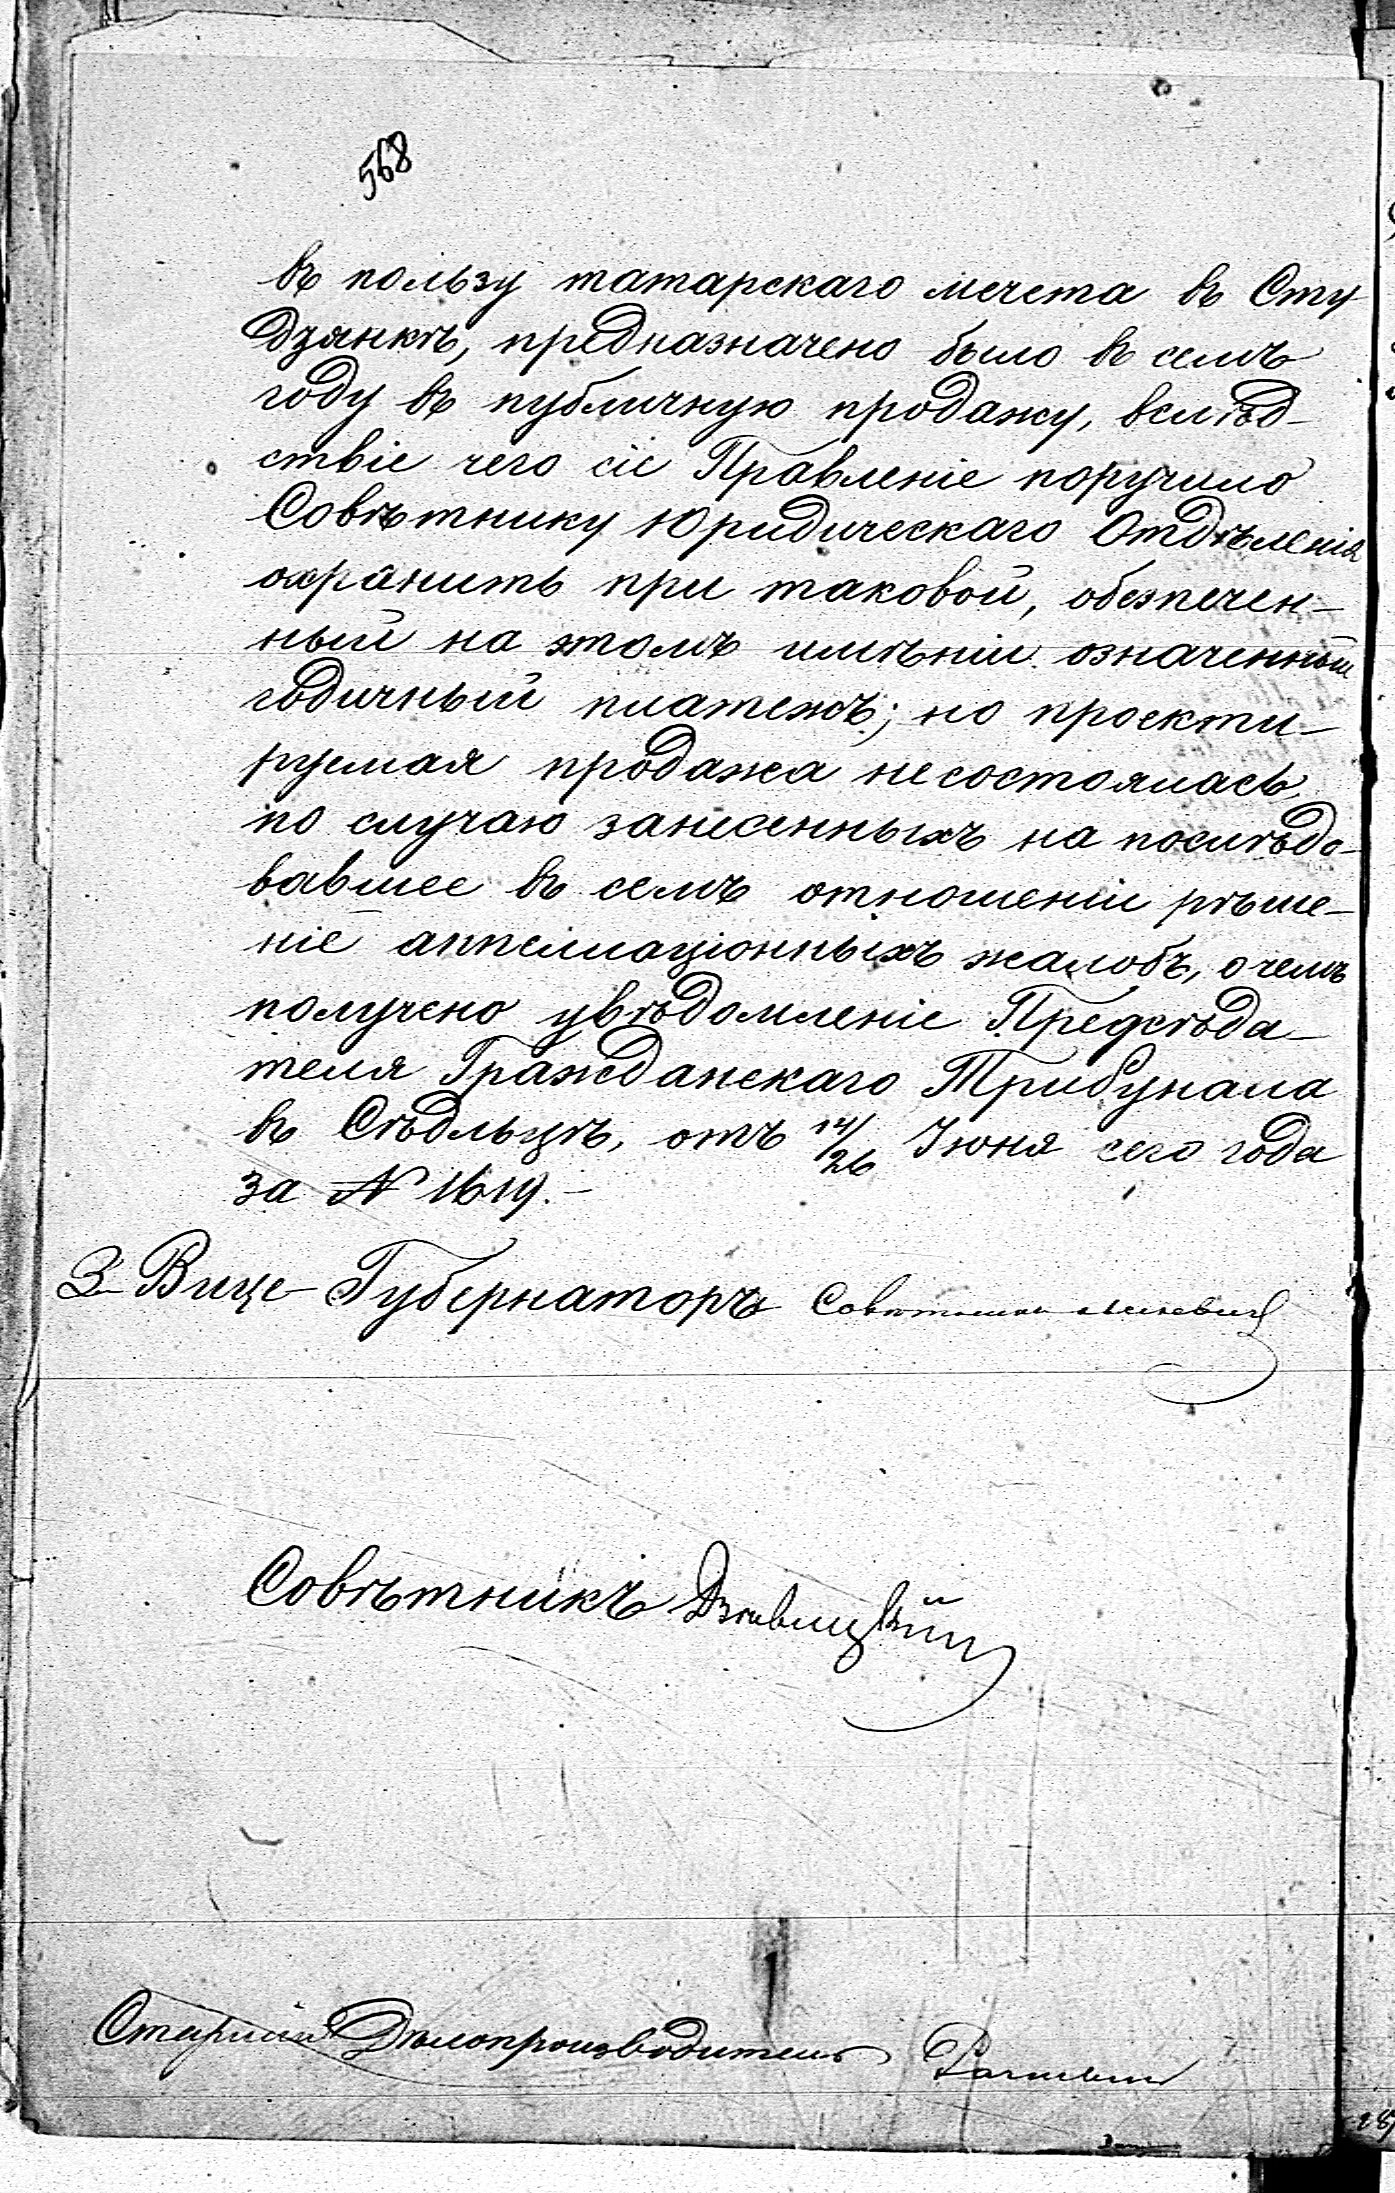 568
въ пользу татарскаго мечета въ Сту
дзянкѣ, предназначено было въ семъ
году въ публичную продажу, вслѣд-
ствіе чего сіе Правленіе поручило
Совѣтнику Юридическаго Отдѣленія
охранить при таковой, обезпечен-
ный на этомъ имѣніи означенный
годичный платежъ; но проекти-
руемая продажа несостоялась,
по случаю занесенныхъ на послѣдо-
вавшее въ семъ отношеніи рѣше-
ніе аппелляціонныхъ жалобъ, о чемъ
получено увѣдомленіе Предсѣда-
теля Гражданскаго Трибунала
въ Сѣдльцѣ, отъ 14/26 Іюня сего года
за № 1619.-
З- Вице-Губернаторъ Совѣтникъ
Совѣтникъ
Старшій Дѣлопроизводитель